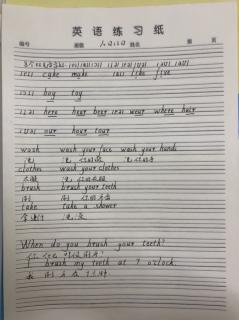 英语练习纸
编号 班级 姓名 页
cake make like five
boy toy
here hear beer wear where hair
our hour tour
wash wash your face wash your hands
洗 洗你的脸 洗你的手
clothes wash your clothes
衣服 洗你的衣服
brush brush your teeth
刷 刷你的牙
take take a shower
洗澡
When do you brush your teeth?
I brush my teeth at 7 o'clock.
我 刷牙在7点钟